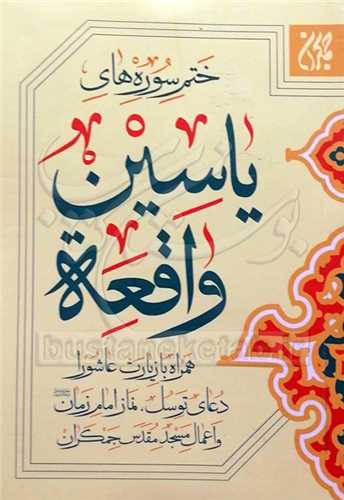 جمکران
ختم سوره های
یاسین
واقعة
همراه با زیارت عاشورا
دعای توسل، نماز امام زمان
و اعمال مسجد مقدس جمکران